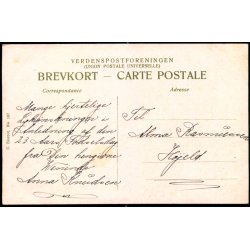 VERDENSPOSTFORENINGEN
(UNION POSTALE UNIVERSELLE)
BREVKORT – CARTE POSTALE
Correspondance
Adresse
Mange hjertelige
Lykønskninger i
Anledning af den
23 Aars Fødselsdag
fra Din hengivne
Veninde
Anna Knudsen
Til
Alma Rasmussen